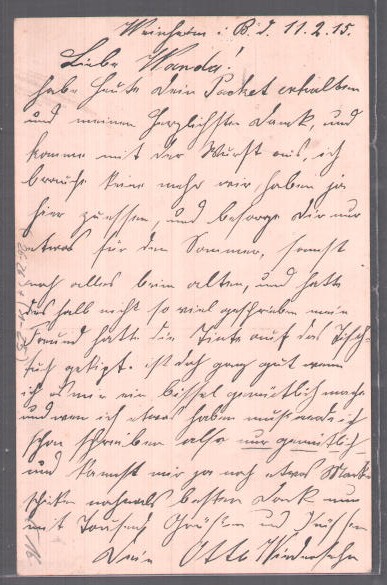 Weinheim i. B. d. 11.2.15.
Liebe Wanda!
habe heute dein Packet erhalten
und meinen herzlichsten Dank, und
komme mit der Wurst aus, ich
brauche keine mehr wir haben ja
hier zu essen, und besorge dir nur
etwas für den Sommer, sonst
noch alles beim alten, und hatte
deshalb nicht so viel geschrieben mein
Freund hatte die Tinte auf das Tisch-
tuch ist doch ganz gut wenn
ich es mir ein bissel gemütlich mache
und wen ich etwas haben muß werde ich
schon schreiben also nur gemütlich
und kannst mir ja noch etwas Marke
schicken nochmals besten Dank nun
mit Tausend Grüßen und Küssen
Dein Otto Wiedersehn